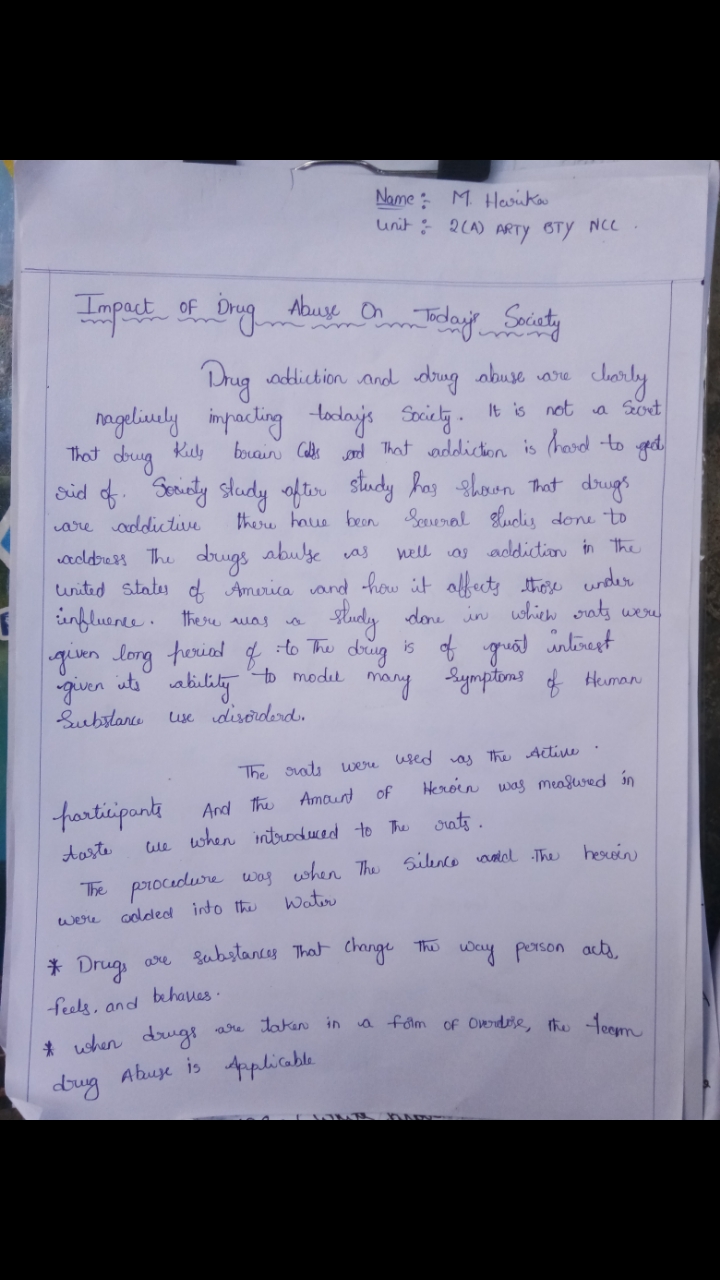 Name :- M. Harika
Unit :- 2(A) ARTY BTY NCC .
Impact of Drug Abuse On Today's Society
Drug addiction and drug abuse are clearly
nagelively impacting today's Society. It is not a Secret
That drug Kills brain Cells and That addiction is hard to get
rid of. Society study after study has shown that drugs
are addictive there have been Several studis done to
address The drugs abulse as well as addiction in the
united states of America and how it affects those under
influence. there was a study done in which rats were
given long period of to The drug is of great interest
given its ability to model many Symptoms of Human
Substance use disorderd.
The rats were used as the Active .
participants And the Amount of Heroin was measured in
taste we when introduced to The rats.
The procedure was when The Silence and The heroin
were added into the Water
* Drugs are substances That change The way person acts,
feels, and behaves.
* when drugs are taken in a form of overdose, the term
drug Abuse is Applicable